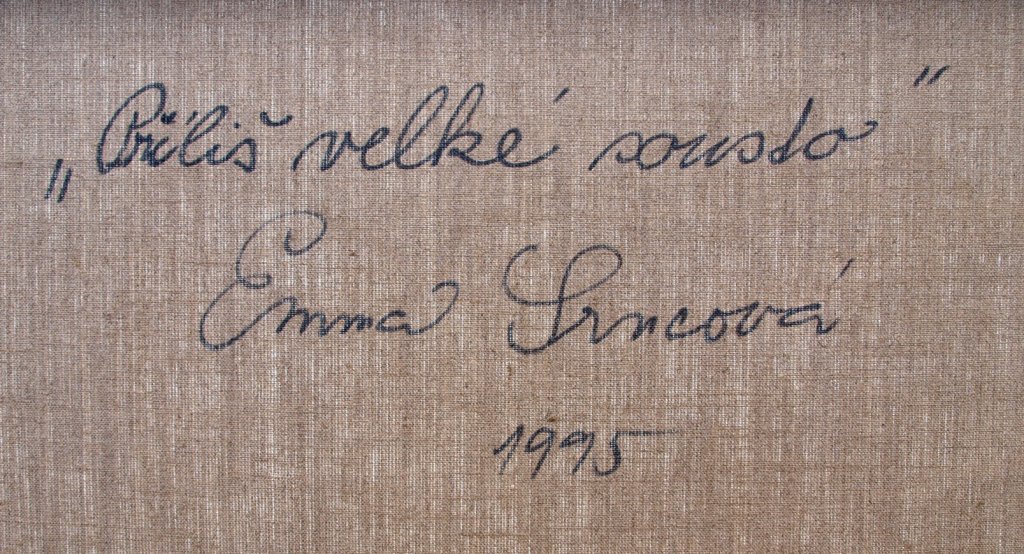 „Příliš velké sousto"
Emma Srncová
1995